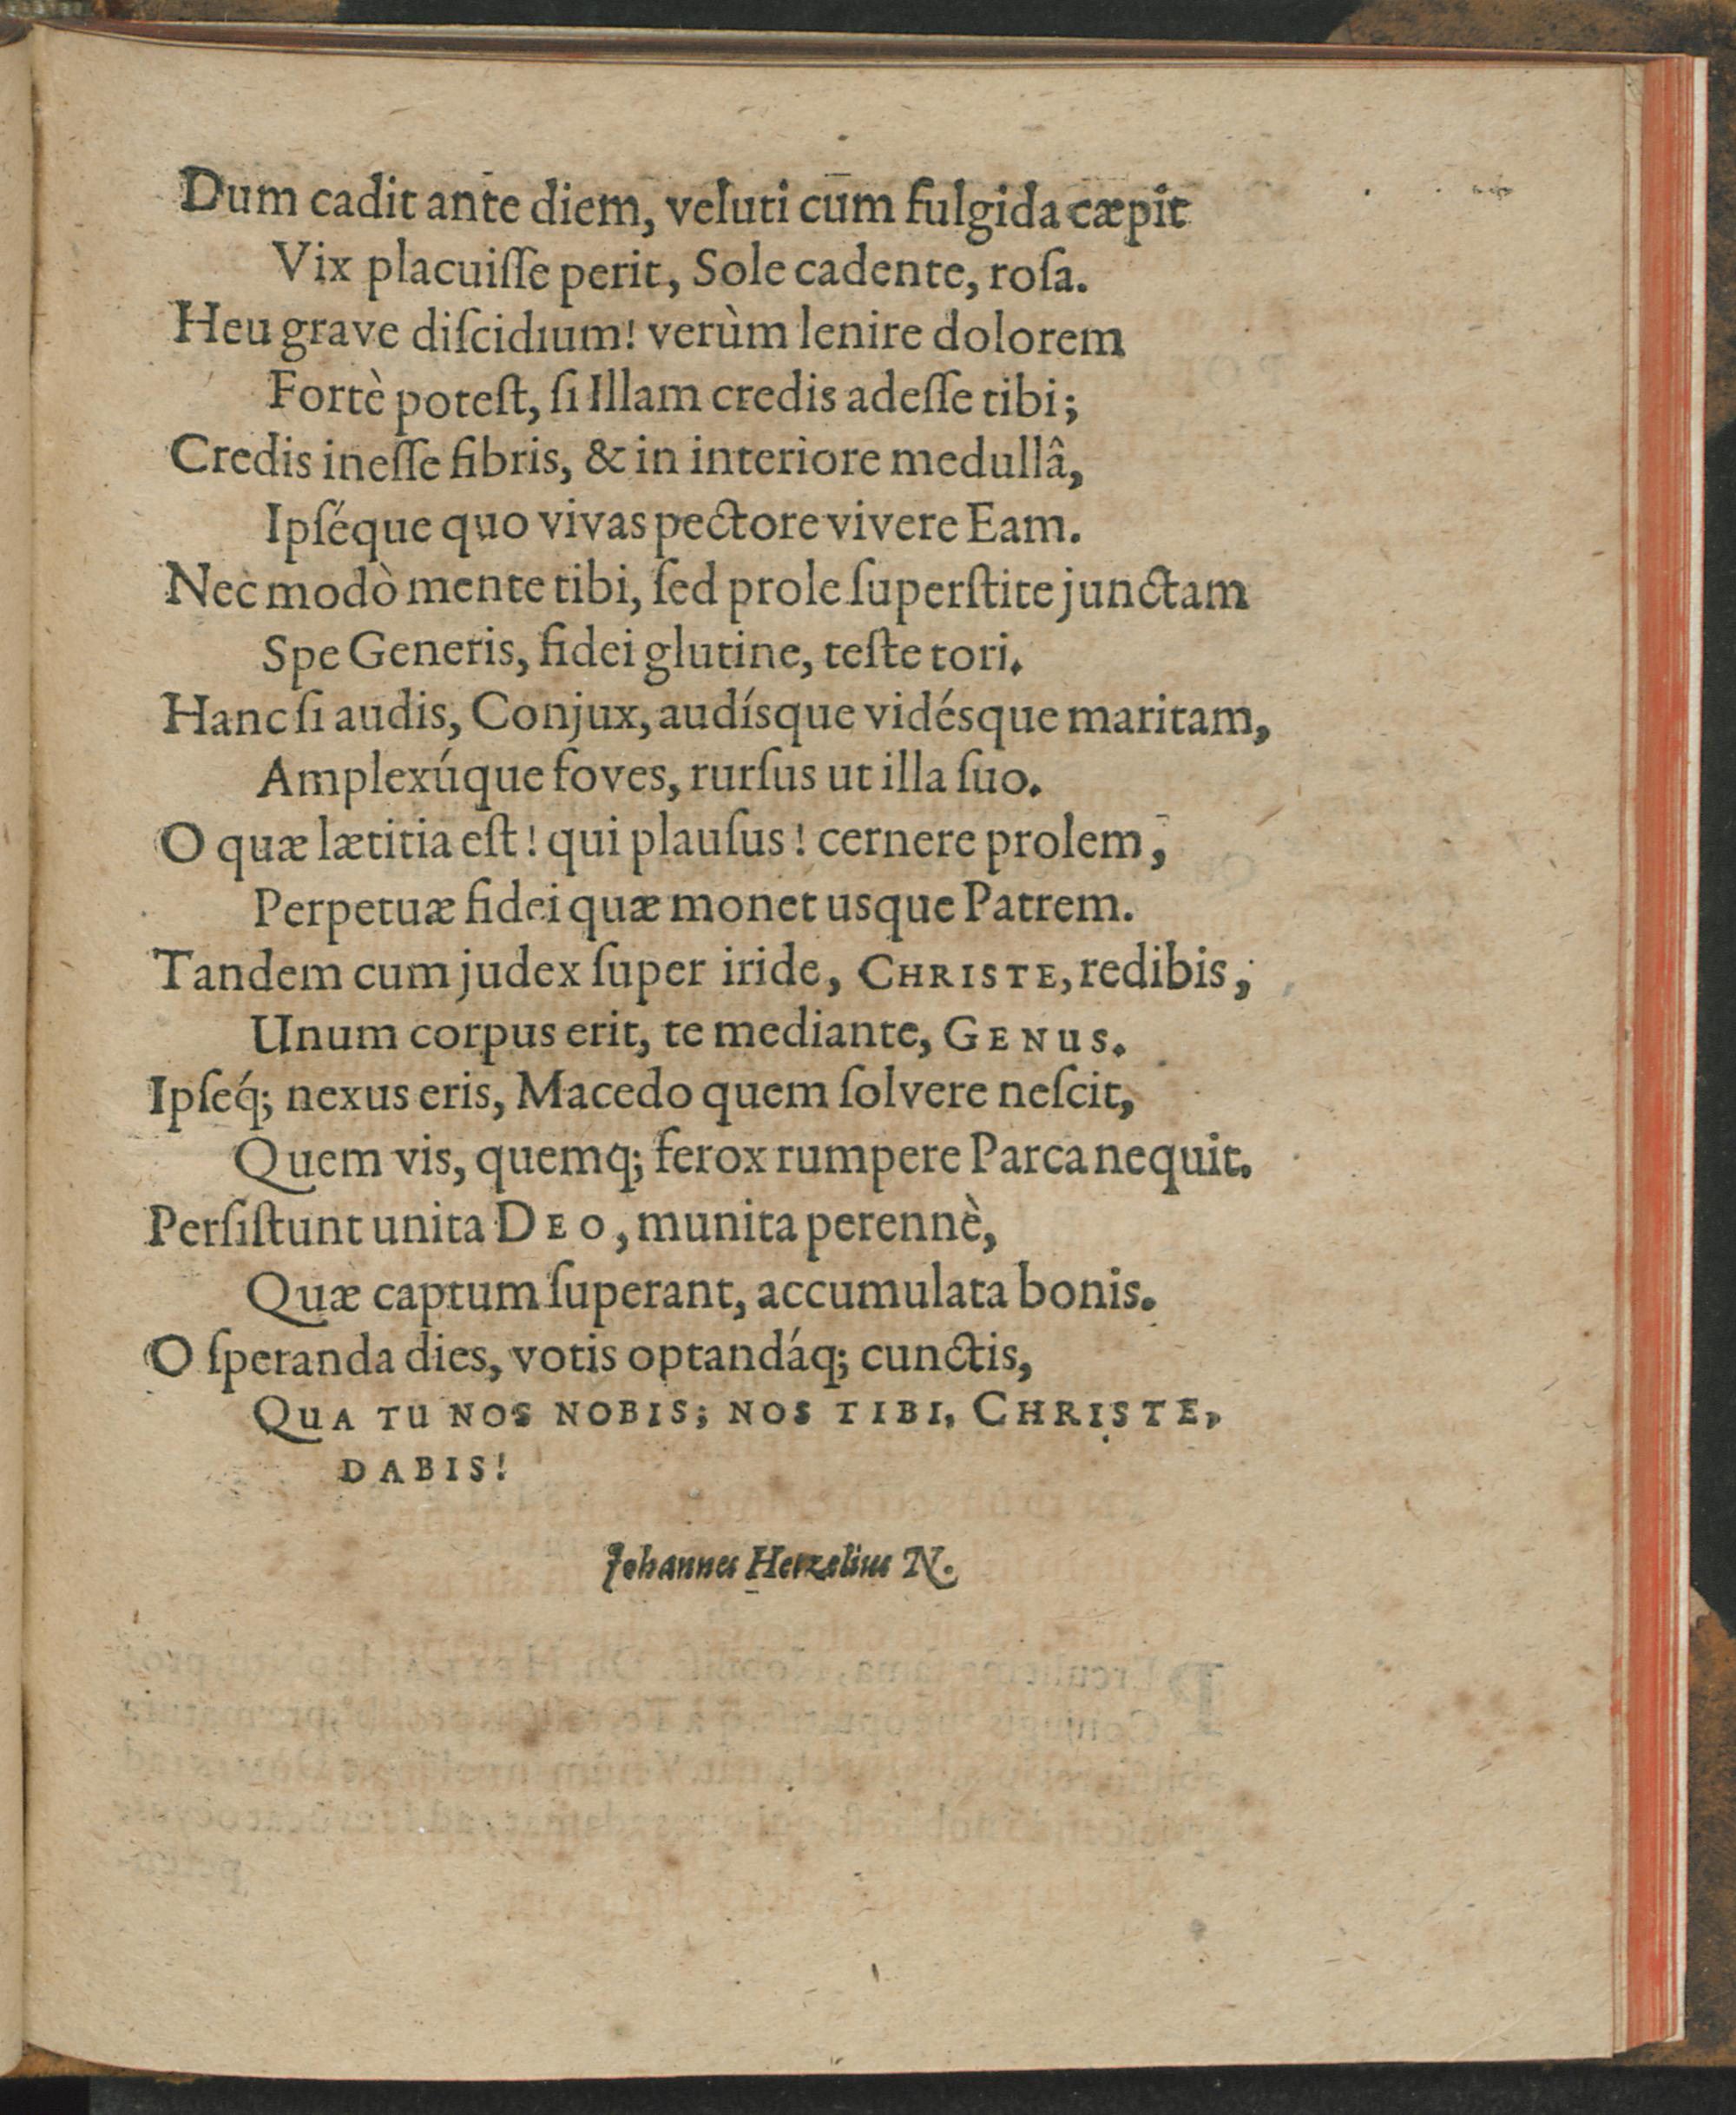 Dum cadit ante diem, veluti cum fulgida cæpit
Vix placuiſſe perit, Sole cadente, roſa.
Heu grave diſcidium! verùm lenire dolorem
Fortè poteſt, ſi Illam credis adeſſe tibi;
Credis ineſſe fibris, & in interiore medullâ,
Ipſéque quo vivas pectore vivere Eam.
Nec modò mente tibi, ſed prole ſuperſtite junctam
Spe Generis, fidei glutine, teſte tori.
Hanc ſi audis, Conjux, audísque vidésque maritam,
Amplexúque foves, rurſus ut illa ſuo.
O quæ lætitia eſt! qui plauſus! cernere prolem,
Perpetuæ fidei quæ monet usque Patrem.
Tandem cum judex ſuper iride, CHRISTE, redibis,
Unum corpus erit, te mediante, GENUS.
Ipſéq; nexus eris, Macedo quem ſolvere neſcit,
Quem vis, quemq; ferox rumpere Parca nequit.
Perſiſtunt unita DEO, munita perennè,
Quæ captum ſuperant, accumulata bonis.
O ſperanda dies, votis optandáq; cunctis,
QUA TU NOS NOBIS; NOS TIBI, CHRISTE,
DABIS!
Johannes Herzelius N.